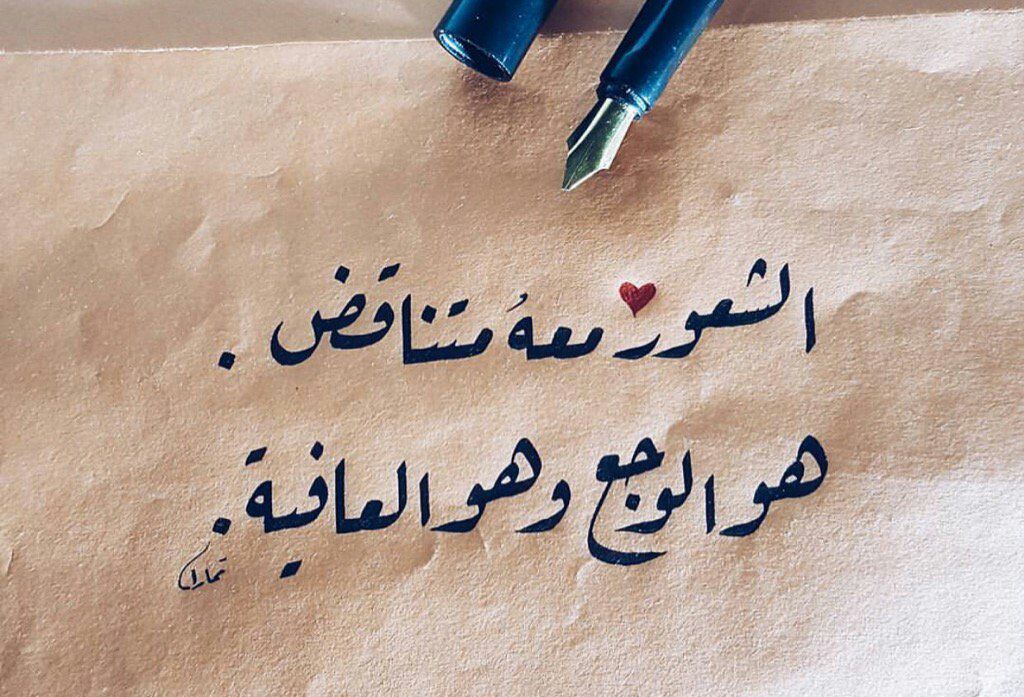 الشعور معهُ متناقض .
هو الوجع وهو العافية .
تمارا